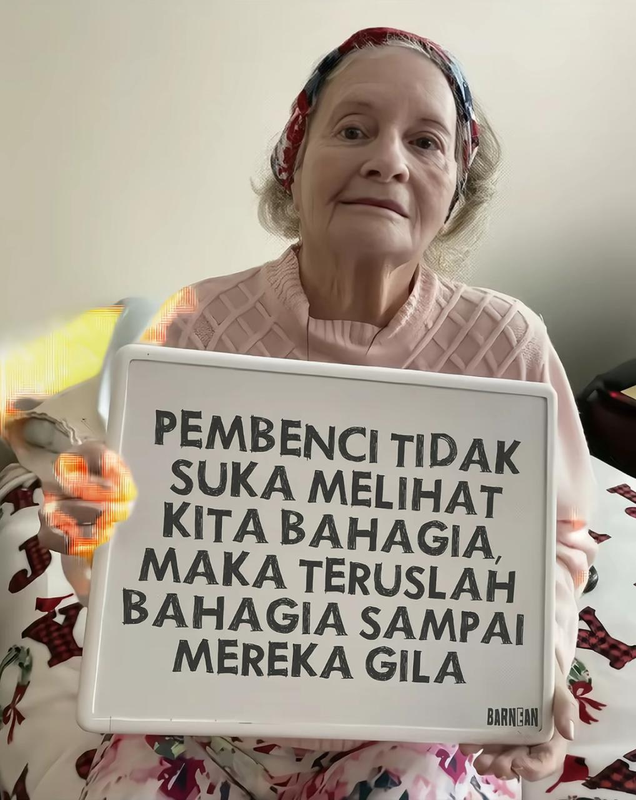 PEMBENCI TIDAK
SUKA MELIHAT
KITA BAHAGIA,
MAKA TERUSLAH
BAHAGIA SAMPAI
MEREKA GILA
BARNEAN